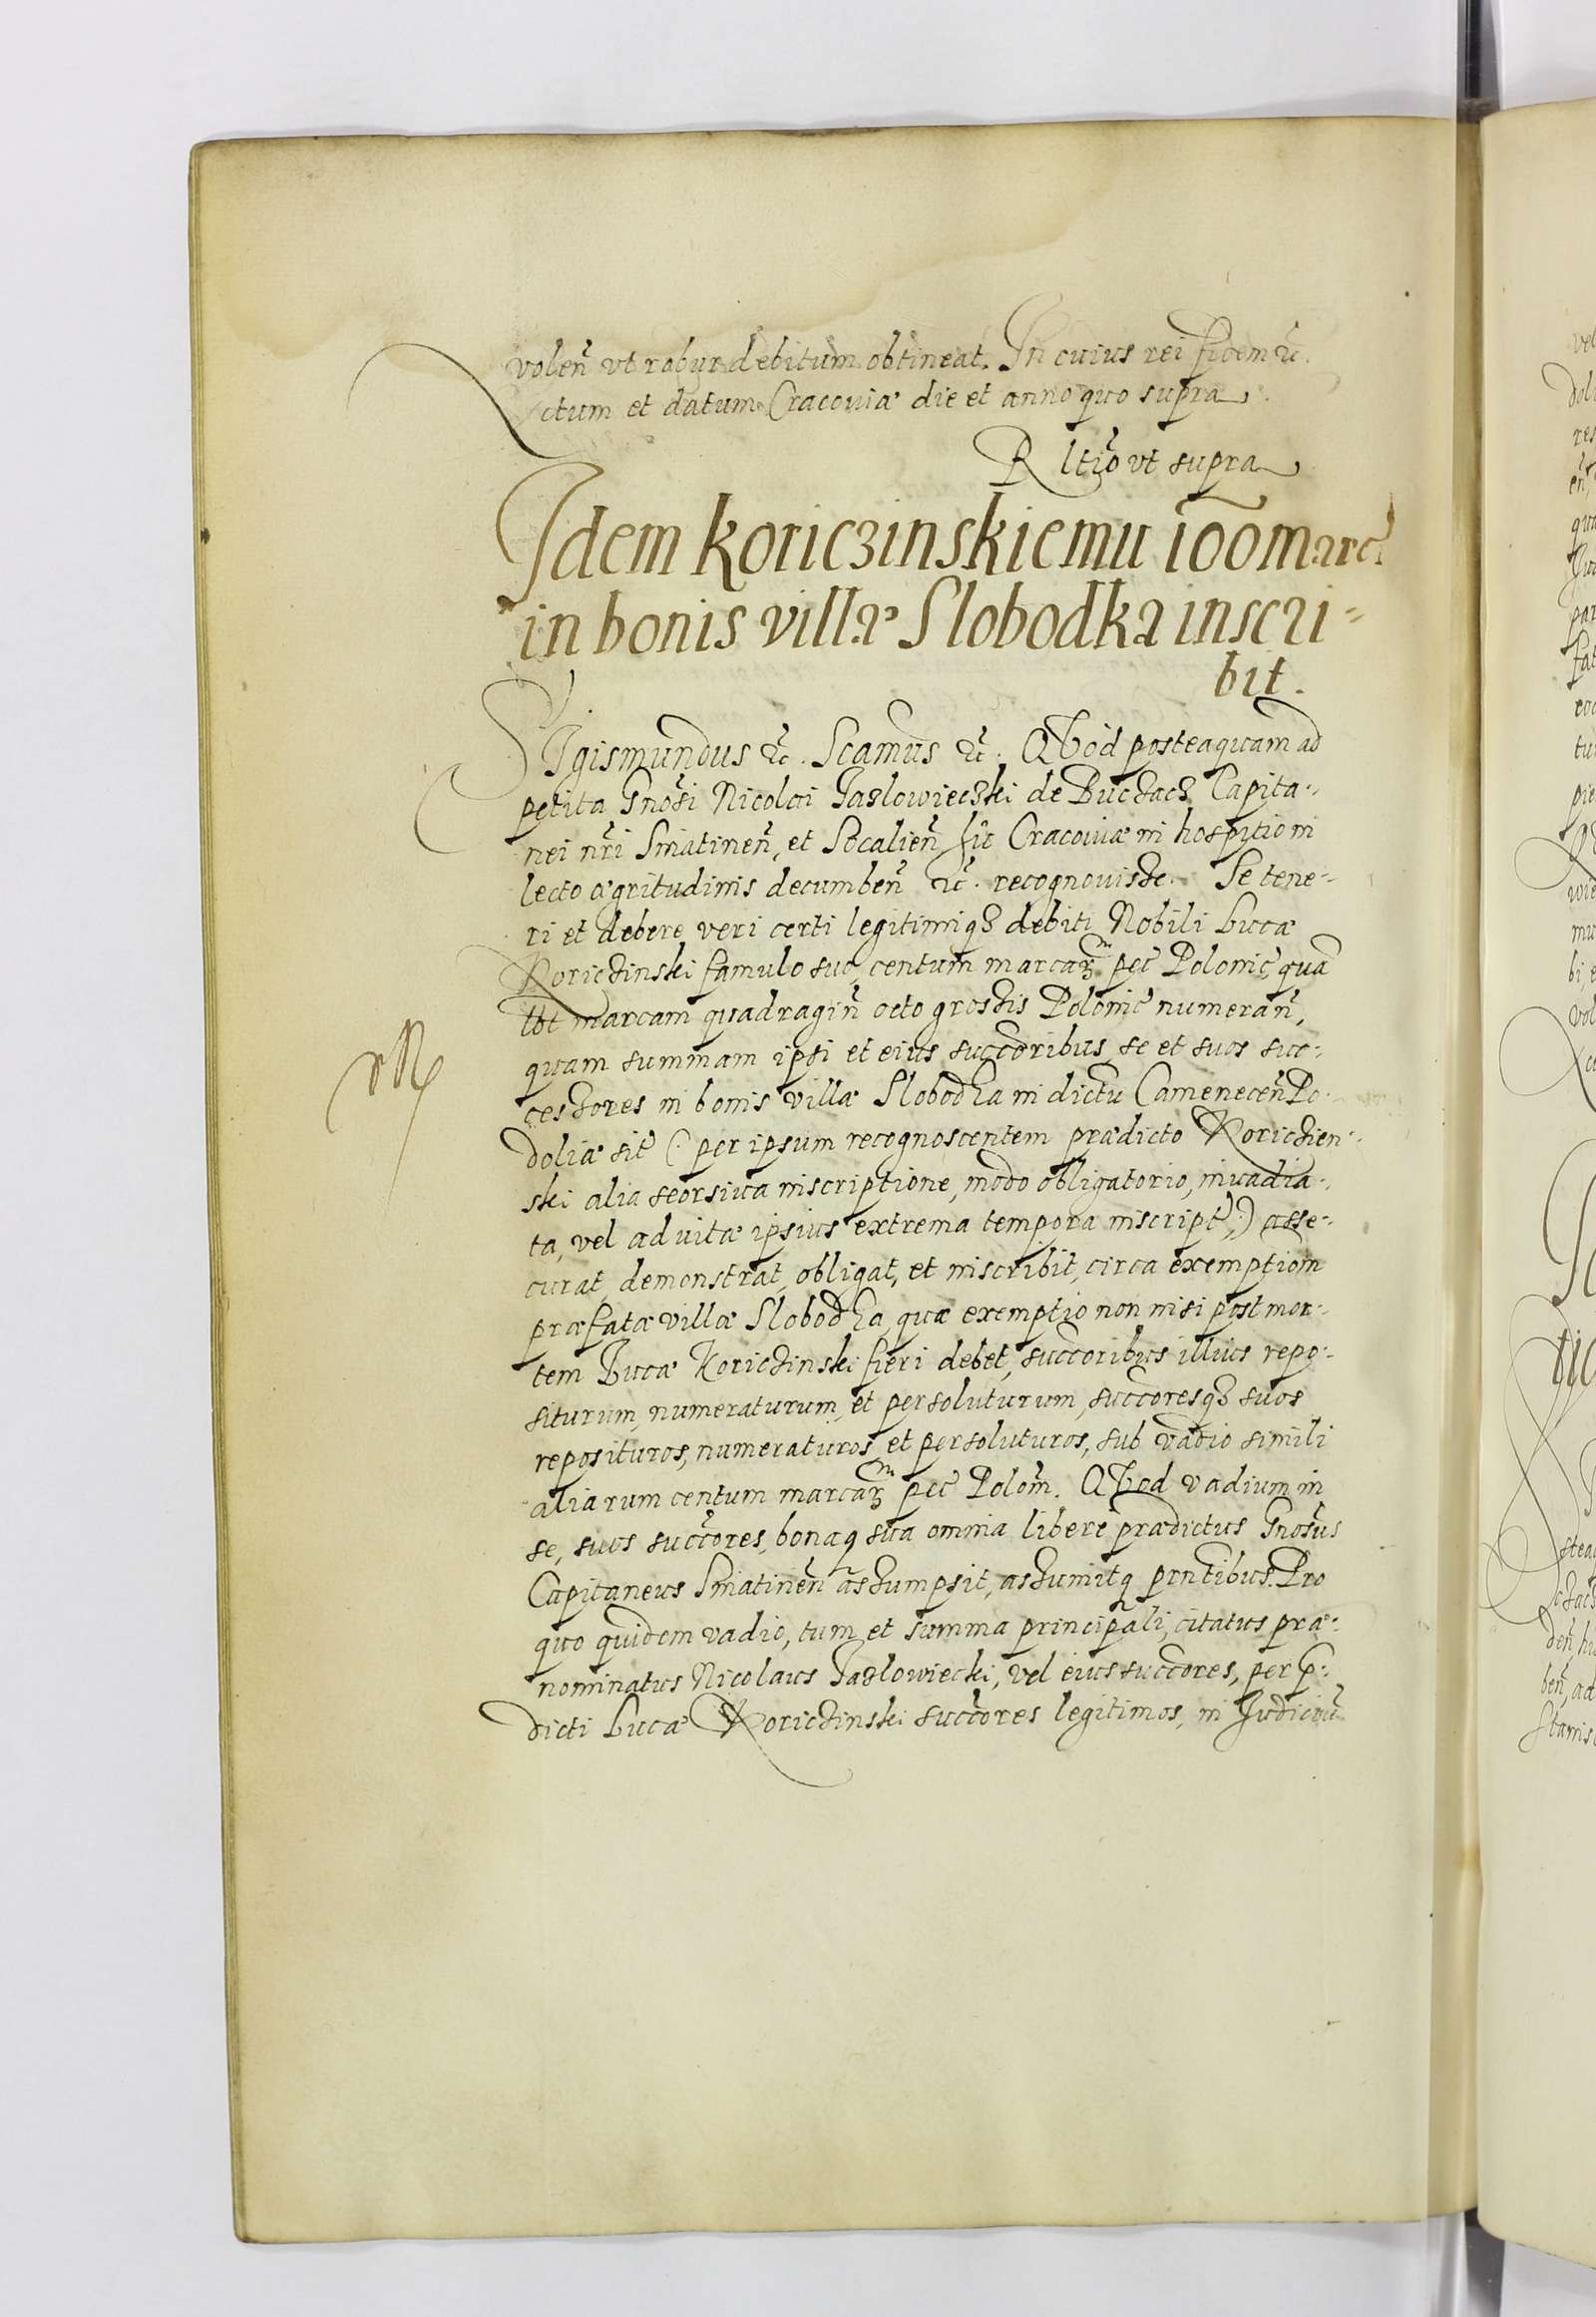 volen̄ vt robur debitum obtineat. In cuius rei fidem ꝛc̄.
Actum et datum Cracouiæ die et anno quo supra.
Rltiō vt supra
Idem Koriczinskiemu 100 marc.
in bonis villæ Slobodka inscri-
bit.
SIgismundus ꝛc̄. Scamus ꝛc̄. QVod posteaquam ad
petita Gnosi Nicolai Jazlowieczki de Buczacz Capita-
nei nr̄i Sniatinen̄, et Socalien̄ hic Cracouiæ in hospitio in
lecto ægritudinis decumben̄ ꝛc̄. recognouisse. Se tene-
ri et debere veri certi legitimiqȝ debiti Nobili Lucæ
Koriczinski famulo suo, centum marcaꝝ pec̄ Polonic̄, quā
lbt marcam quadragin̄ octo grossis Polonic̄ numeran̄,
quam summam ipsi et eius succ̄oribus, se et suos suc-
cessores in bonis villæ Slobodka in dictu Camenecen̄ Po-
doliæ sit̄ (: per ipsum recognoscentem prædicto Koriczien-
ski alia seorsiua inscriptione, modo obligatorio, inuadia-
ta, vel ad vitæ ipsius extrema tempora inscript̄ :) asse-
curat, demonstrat, obligat, et inscribit, circa exemptiom̄
præfatæ villæ Slobodka, quæ exemptio non nisi post mor-
tem Lucæ Koriczinski fieri debet, succ̄oribus illius repo-
siturum, numeraturum, et persoluturum, succ̄oresqȝ suos
reposituros, numeraturos, et persoluturos, sub vadio simili
aliarum centum marcaꝝ pec̄ Polom̄. QVod vadium in
se, suos succ̄ores, bonaq̄ sua omnia libere prædictus Gnosus
Capitaneus Sniatinen̄ assumpsit, assumitq̄ prn̄tibus. Pro
quo quidem vadio, tum et summa principali, citatus præ-
nominatus Nicolaus Jazlowiecki, vel eius succ̄ores, per p̄-
dicti Lucæ Koriczinski succ̄ores legitimos, in Judiciū